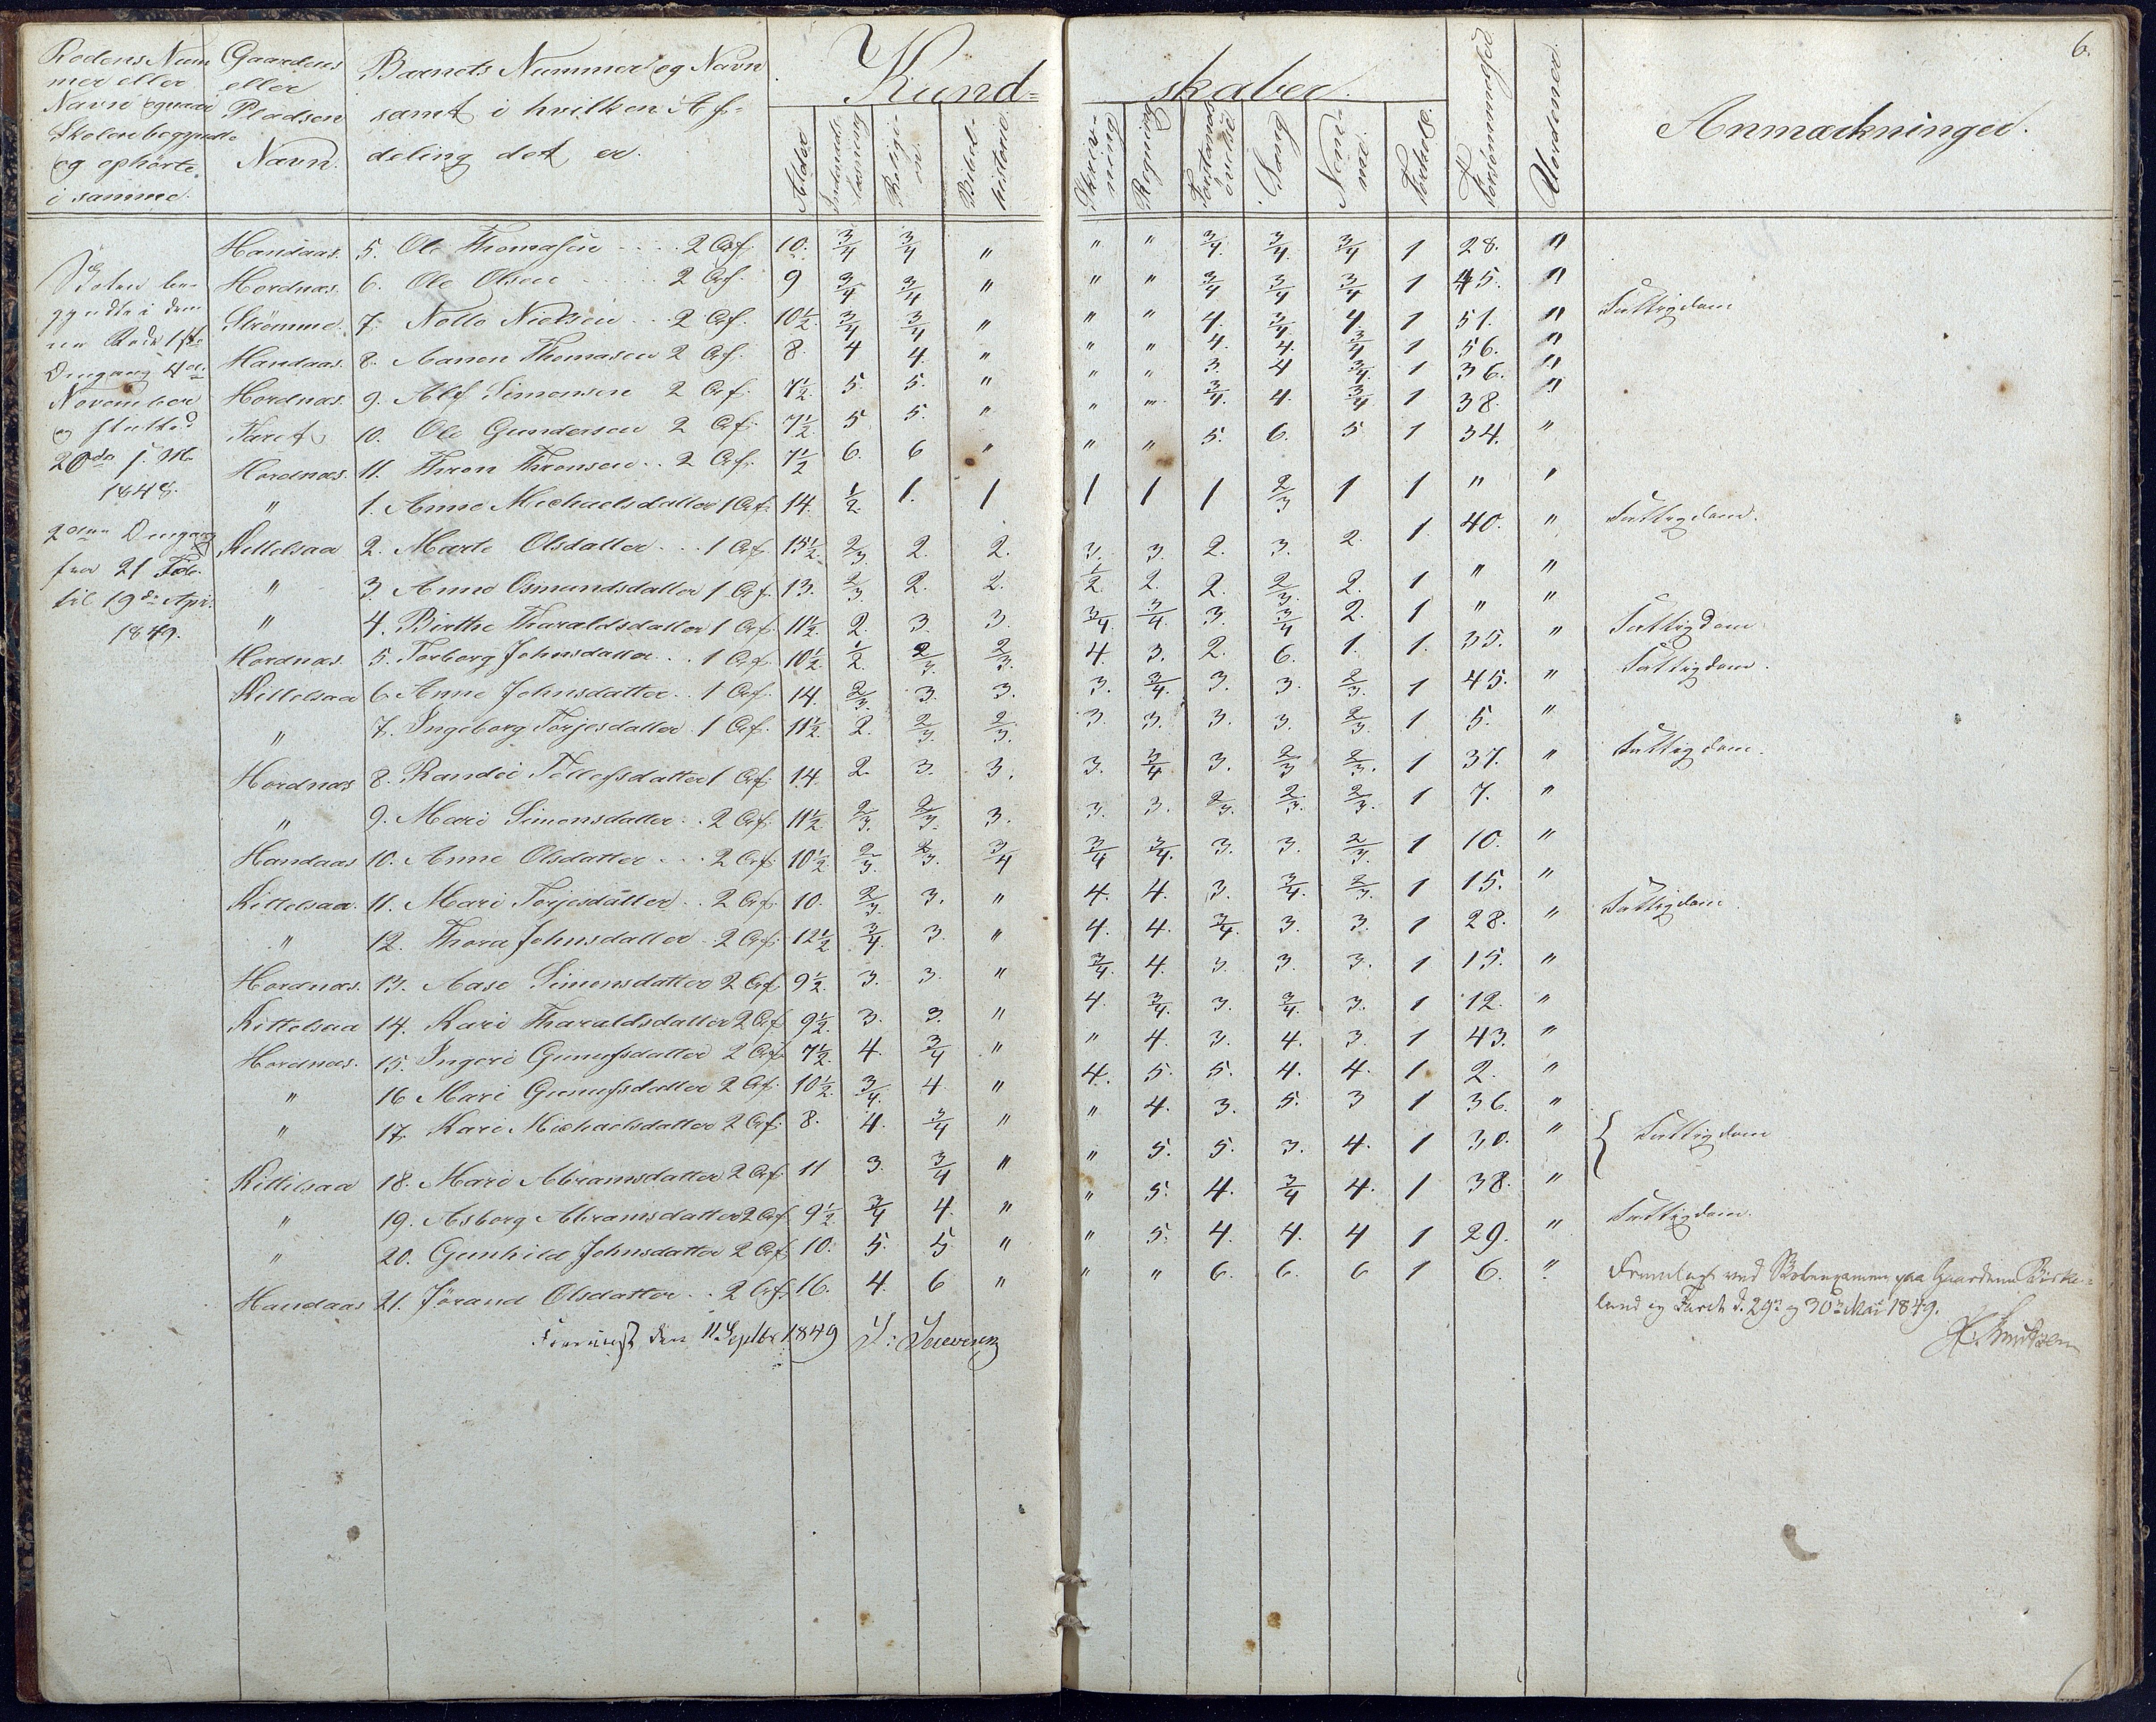 6.
Rodens Num
mer eller
Navn og naar
Skolen begyndte
og ophørte
i samme.
Gaardens
eller
Pladsen
Navn.
Barnets Nummer og Navn
samt i hvilken Af-
deling det er.
Kund=
skaber.
Alder
Indenads-
læsning
Religi-
on.
Bibel-
historie.
Skriv-
ning
Regning
Forstands
øvelse
Sang
Nem-
me.
Forhold.
Forsømmelser
Anmærkninger.
Skolen be-
gyndte i den-
ne Rode 1ste
Omgang 4de
November
og slutted
20de s. M.
1848.
2den Omgang
fra 21 Feb.
til 19de Apr.
1849.
Handaas. 5. Ole Thomasen 2 Af. 10. 3/4 3/4 " " " 3/4. 3/4. 3/4 1 28. "
Hordnæs. 6. Ole Olsen 2 Af. 9 3/4 3/4 " " " 3/4 3/4 3/4 1 45. " Fattigdom
Strømme. 7. Nelle Nielsen 2 Af. 10½. 3/4 3/4 " " " 4. 3/4. 4. 1 51. "
Handaas. 8. Aanon Thomasen 2 Af. 8. 4 4. " " " 4. 4. 3/4 1 56. "
Hordnæs. 9. Alf Simonsen 2 Af. 7½ 5. 5. " " " 3. 4 3/4. 1 36. "
Faret 10. Ole Gundersen 2 Af. 7½. 5 5. " " " 3/4. 4. 3/4 1 38. "
Hordnæs. 11. Thron Thronsen 2 Af. 7½ 6. 6 " " " 5. 6. 5 1 34. "
" 1. Anne Michaelsdatter 1 Af. 14. 1/2. 1. 1 1 1 1 2/3 1 1 " "
Kittelsaa 2. Marte Olsdatter 1 Af. 15½. 2/3. 2. 2. 3. 3. 2. 3. 2. 1 40. " Fattigdom.
" 3. Anne Osmundsdatter 1 Af. 13. 2/3. 2. 2. 1/2 2. 2. 2/3. 2. 1 " "
" 4. Birthe Tharaldsdatter 1 Af. 11½. 2. 3. 3. 3/4. 3/4. 3. 3/4 2. 1 " "
Hordnæs. 5. Torborg Johnsdatter 1 Af. 10½ 1/2. 2/3. 2/3. 4. 3. 2. 6. 1. 1. 35. " Fattigdom
Kittelsaa 6. Anne Johnsdatter 1 Af. 14. 2/3. 3. 3. 3. 3/4. 3. 3. 2/3. 1 45. " Fattigdom.
" 7. Ingeborg Torjesdatter 1 Af. 11½ 2. 2/3. 2/3. 3. 3. 3. 3. 2/3. 1 5. "
Hordnæs 8. Randei Tellefsdatter 1 Af. 14. 2. 3. 3. 3. 3/4 3. 2/3 2/3. 1 37. " Fattigdom.
" 9. Mari Simonsdatter 2 Af. 11½ 2/3. 2/3. 3. 3. 3. 2/3. 2/3. 2/3. 1 7. "
Handaas 10. Anne Olsdatter 2 Af. 10½ 2/3. 2/3. 3/4 3/4 3/4. 3. 3. 2/3. 1 10. "
Kittelsaa. 11. Mari Torjesdatter 2 Af. 10. 2/3. 3. " 4. 4. 3. 3/4. 2/3. 1 15. "
" 12. Thora Johnsdatter 2 Af. 12½ 3/4. 3. " 4. 4. 3/4. 3. 3. 1 28. " Fattigdom
Hordnæs. 13. Aase Simonsdatter 2 Af. 9½. 3. 3. " 3/4. 4. 3. 3. 3. 1 15. "
Kittelsaa 14. Kari Tharaldsdatter 2 Af. 9½. 3. 3. " 4. 3/4. 3. 3/4. 3. 1 12. "
Hordnæs. 15. Ingeri Gunufsdatter 2 Af. 7½. 4. 3/4 " " 4. 3. 4. 3. 1 43. "
" 16 Mari Gunufsdatter 2 Af. 10½. 3/4. 4 " 4. 5. 5. 4. 4. 1 2. "
" 17. Kari Michaelsdatter 2 Af. 8. 4. 3/4 " " 4. 3. 5. 3 1 36. "
Kittelsaa 18. Mari Abramsdatter 2 Af. 11 3. 3/4 " " 5. 5. 3. 4. 1 30. " Fattigdom
" 19. Asborg Abramsdatter 2 Af. 9½ 3/4 4. " " 5. 4. 3/4 4. 1 38. "
" 20. Gunhild Johnsdatter 2 Af. 10. 5. 5 " " 5. 4. 4. 4 1 29. " Fattigdom.
Handaas 21. Jørand Olsdatter 2 Af. 16. 4. 6 " " " 6. 6. 6 1 6. "
Fremlagt ved Skoleexamen paa Gaardene Birke=
land og Faret d. 29de og 30de Mai 1849.
Knutsen
den 11 Septbr 1849